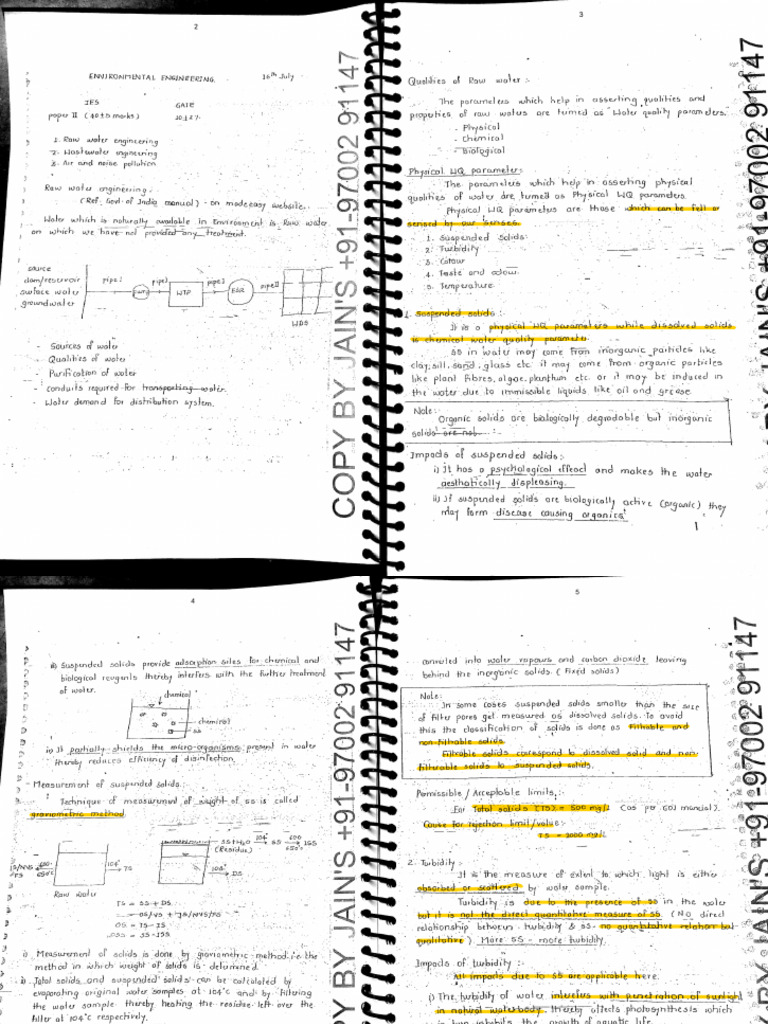 2
ENVIRONMENTAL ENGINEERING. 16th July
IES GATE
paper II (40±5 marks) 10-12%
1. Raw water engineering
2. Wastewater engineering
3. Air and noise pollution
Raw water engineering.
(Ref. God. of India manual) - on madeeasy website.
Water which is naturally available in Environment is Raw water
on which we have not provided any treatment.
source
dam/reservoir
surface water
groundwater
pipe I
pipe I
WTP
pipe I
ESR
pipe II
WDS
- Sources of water
- Qualities of water
- Purification of water
- conduits required for transporting water.
- Water demand for distribution system.
COPY BY JAIN'S +91-97002 91147
3
Qualities of Raw water :-
The parameters which help in asserting qualities and
properties of raw waters are turmed as 'Water quality parameters.'
- Physical
- Chemical
- Biological
Physical WQ parameter:
The parameters which help in asserting physical
qualities of water are turmed as Physical WQ parameters.
Physical WQ parameters are those which can be felt or
sensed by our senses.
1. Suspended solids
2. Turbidity
3. Colour
4. Taste and odour
5. Temperature
1. Suspended solids :
It is a physical WQ parameters while dissolved solids
is chemical water quality parameter.
SO in water may come from inorganic particles like
clay, sill, sand, glass etc it may come from organic particles
like plant Fibres, algae, planthum etc. or it may be induced in
the water due to immissible liquids like oil and grease.
Note:
Organic solids are biologically degradable but inorganic
solids are not.
Impacts of suspended solids:-
i) it has a psychological effect and makes the water
aesthatically displeasing.
ii) If suspended solids are biologically active (organic) they
may form disease causing organics'
1
+91-97002 91147
4
iii) Suspended solids provide adsorption sites for chemical and
biological reugents thereby interfers with the further treatment
of water.
chemical
chemical
SS
iv) It partially shields the micro-organisms present in water
thereby reduces efficiency of disinfection.
- Measurement of suspended solids.
Technique of measurement of weight of ss is called
graviometric method.
104°
TS
650°
Raw water
SS+H2O
(Residue)
104°
SS
600
650°c
ISS
104°
DS
TS = SS + DS
i) Measurement of solids is done by graviometric method i.e the
method in which weight of solids is determined.
ii) Total solids and suspended solids can be calculated by
evaporating original water samples at 104°c and by filtering
the water sample thereby heating the residue left over the
filter at 104°c respectively.
BY JAIN'S +91-97002 91147
5
converted into water vapours and carbon dioxide leaving
behind the inorganic solids. (Fixed solids)
Note:
In some cases suspended solids smaller than the size
of filter pores get measured as dissolved solids. To avoid
this the classification of solids is done as Filtrable and
non-filtrable solids.
Filtrable solids correspond to dissolved solid and non-
filterable solids to suspended solids.
Permissible / Acceptable limits,:-
For Total solids (TS) = 500 mg/l (as per GOI mancial).
Cause for rejection limit/value:-
TS = 2000 mg/l
2. Turbidity :
It is the measure of extent to which light is either
absorbed or scattered by water sample.
Turbidity is due to the presence of SS in the water
but it is not the direct quantitative measure of SS (NO direct
relationship between turbidity & SS - no quantitative relation but
qualitative) More SS - more turbidity.
Impacts of turbidity :-
All impacts due to SS are applicable here.
i) The turbidity of water interfers with penetration of sunlight
in natural waterbody, thereby affects photosynthesis which
in turn inhibits the growth of aquatic life.
BY JAIN'S +91-97002 91147